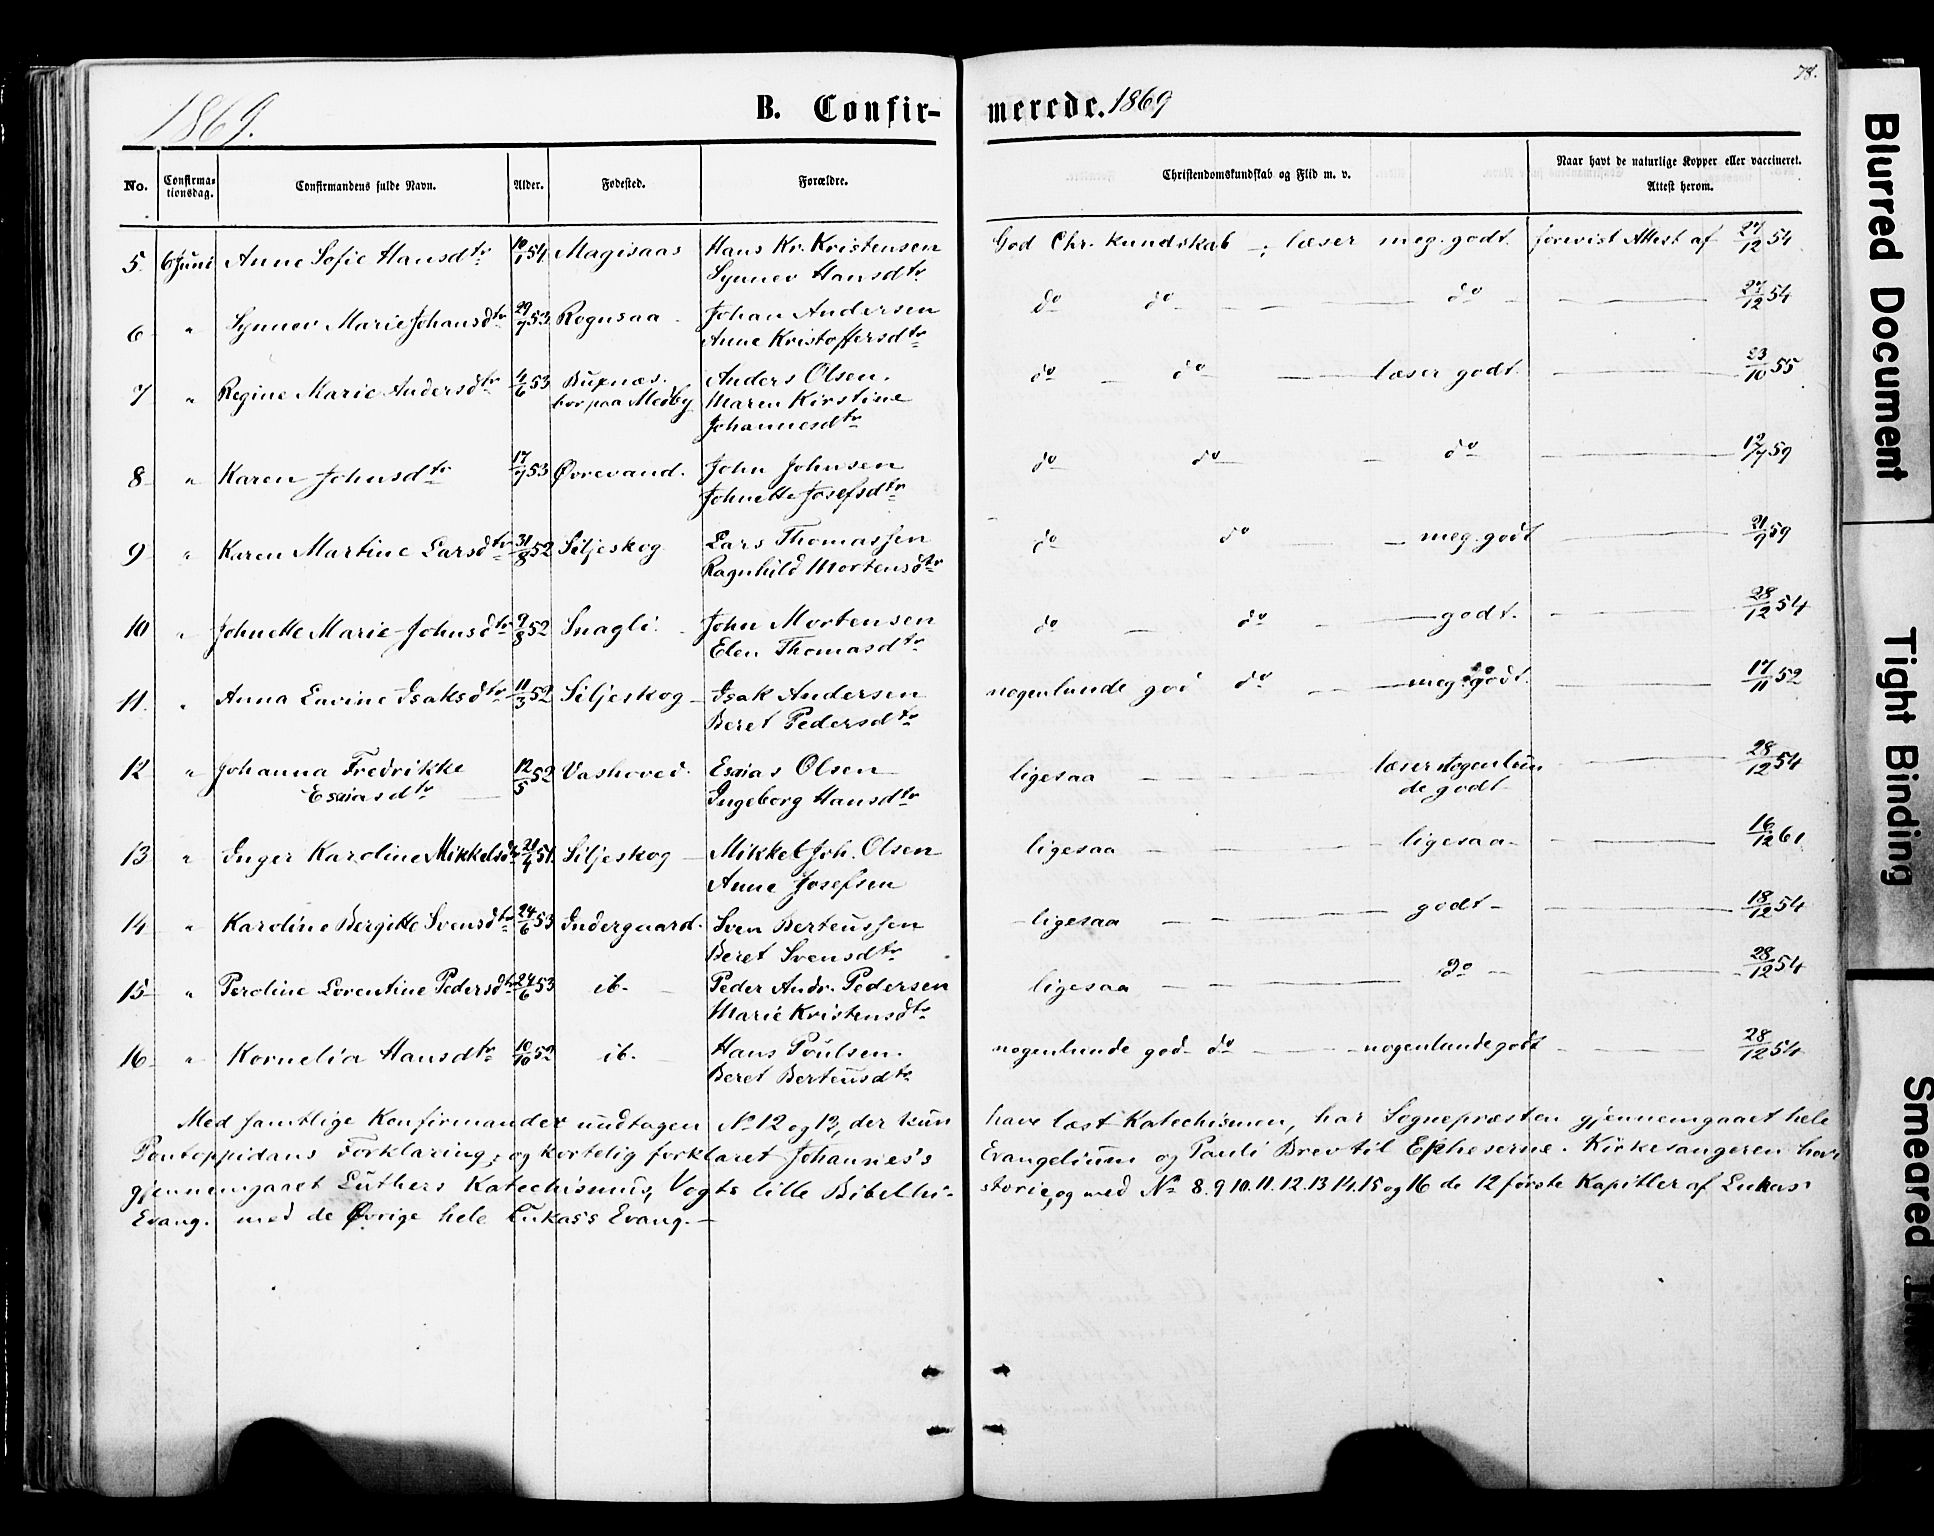 78.
1869. B. Confir- merede. 1869
No. Confirma- tionsdag. Confirmandens fulde Navn. Alder. Fødested. Forældre. Christendomskundskab og Flid m. v. Naar havt de naturlige Kopper eller vaccineret. Attest herom.
5. 6 Juni Anne Sofie Hansdtr 10/1 54 Magisaas Hans Kr. Kristensen God Chr. kundskab – ; læser meg. godt. forevist Attest af 27/12 54
Synnev Hansdtr
6 " Synnov Marie Johansdtr 29/7 53 Rognsaa Johan Andersen do do — — do — 27/12 54
Anne Kristoffersdtr
7 " Regine Marie Andersdtr 4/6 53 Buxnæs. Anders Olsen. do — do — læser godt. — 23/10 55
bor paa Medby Maren Kirstine
Johannesdtr
8 " Karen Johnsdtr 17/7 53 Øvrevand. John Johnsen do do — do — 12/7 59
Johnette Josefsdtr
9 " Karen Martine Larsdtr 31/8 52 Siljeskog Lars Thomassen do do — meg. godt — 21/9 59
Ragnhild Mortensdtr
10 " Johnette Marie Johnsdtr 9/8 52 Snagli. John Mortensen do — do — godt. — 28/12 54
Elen Thomasdtr
11. " Anna Eavine Isaksdtr 11/3 52 Siljeskog Isak Andersen nogenlunde god do — meg. godt. — 17/11 52
Beret Pedersdtr
12 " Johanna Fredrikke 12/5 52 Vashoved. Esaias Olsen ligesaa — læser nogenlun — 28/12 54
Esaiasdtr Ingeborg Hansdtr de godt
13 " Inger Karoline Mikkelsdtr 51. Siljeskog Mikkel Joh. Olsen ligesaa — ligesaa — 16/12 61
Anne Josefsen
14 " Karoline Bergitte Svensdtr 24/6 53 Indergaard. Sven Berteussen ligesaa — godt — 18/12 54
Beret Svensdtr
15 " Peroline Lorentine Pedersdtr 24/6 53 ib. Peder Andr. Pedersen ligesaa — do — 28/12 54
Marie Kristensdtr
16 " Kornelia Hansdtr 10/10 52 ib. Hans Poulsen. nogenlunde god do — nogenlunde godt — 28/12 54
Beret Berteusdtr
Med samtlige Konfirmander undtagen No 12 og 13, der kun have læst Katechismen, har Sognepræsten gjennemgaaet hele
Pontoppidans Forklaring, og kortelig forklaret Johannes's Evangelium og Pauli Brev til Epheserne. Kirkesangeren have
gjennemgaaet Luthers Katechismus, Vogts lille Bibelhi- storie, og med No 8. 9 10. 11. 12. 13 14. 15 og 16 de 12 første Kapitler af Lukas'
Evang. med de Øvrige hele Lukas's Evang. —
Blurred Document
Tight Binding
Smeared